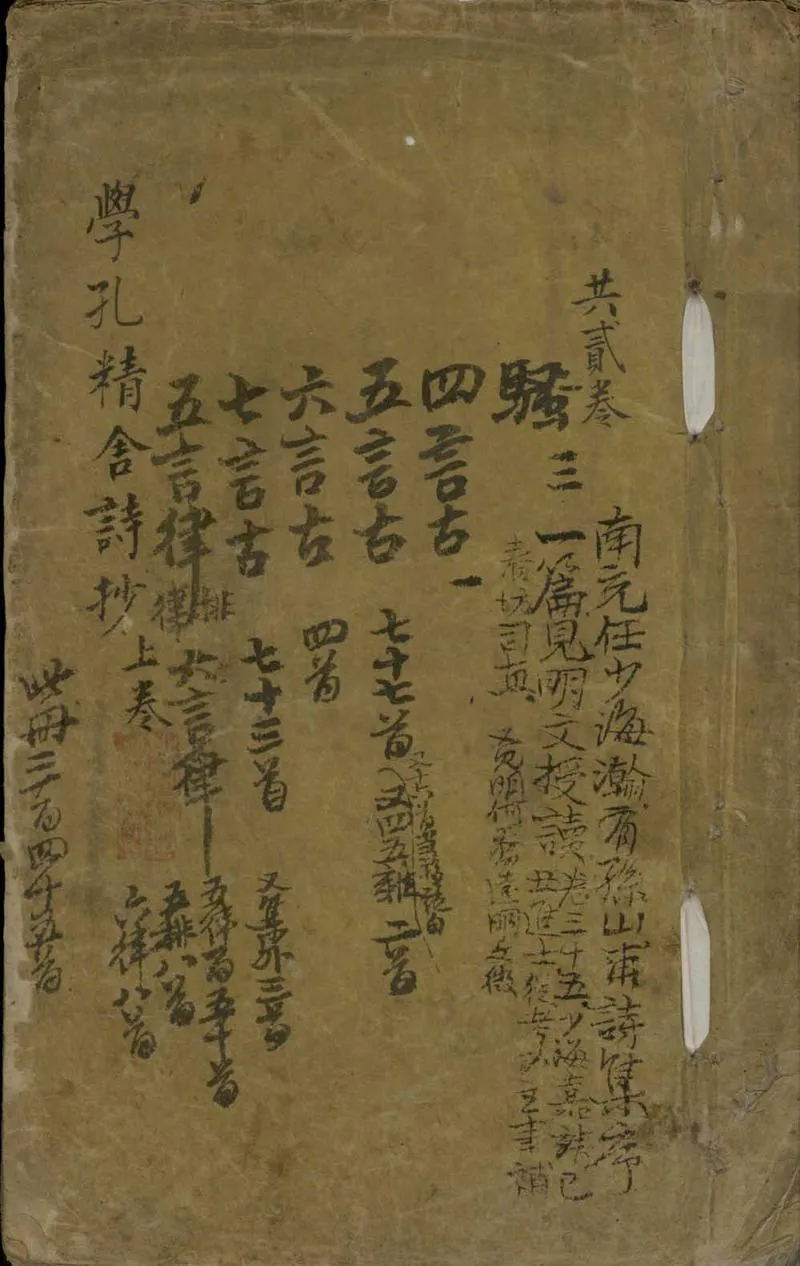 共貳卷
南充任少海瀚有孫山甫詩集序
一篇見明文授讀卷三十五少海嘉靖己
丑進士從
春坊司直
又見明何
騷 三
四言古 一
五言古 七十七首 又四五雜二首
六言古 四首
七言古 七十三首 又集外三首
五言律 排律 六言律
五律百五十首
五排八首
六律八首
學孔精舍詩抄 上卷
此冊三百四十五首